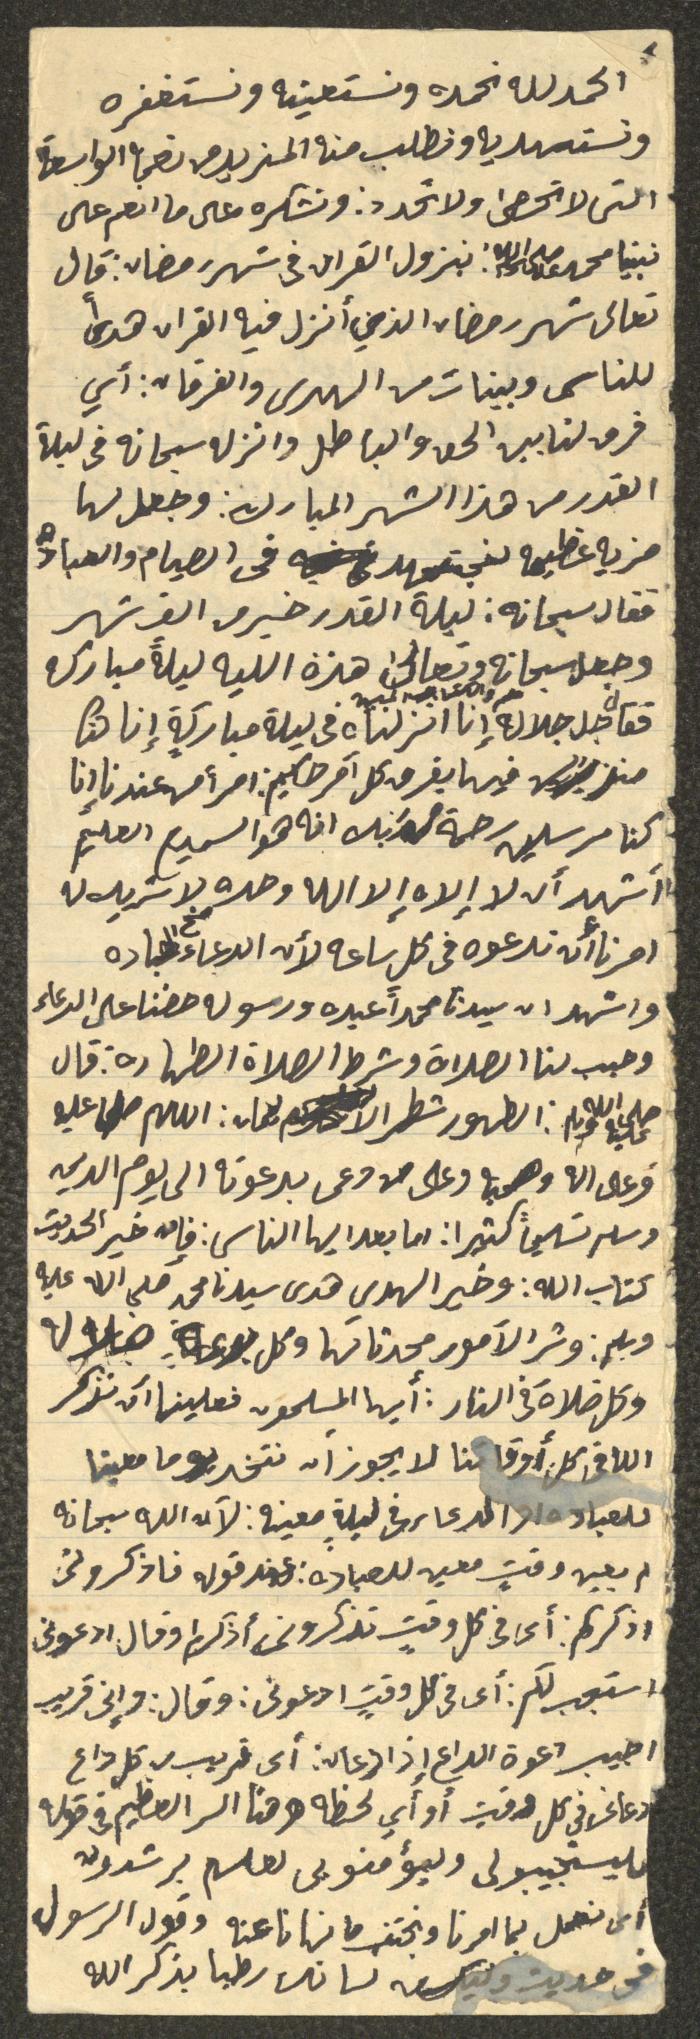 الحمد لله نحمده ونستعينه ونستغفره
ونستهديه ونطلب منه المزيد من نعمه الواسعة
التى لا تحصى ولا تحدد: ونشكره على ما انعم على
نبينا محمد صلى الله عليه وسلم: بنزول القران فى شهر رمضان: قال
تعالى شهر رمضان الذي أنزل فيه القران هدىً
للناس وبينات من الهدى والفرقان: أي
فرق لنا بين الحق والباطل وانزله سبحانه فى ليلة
القدر من هذا الشهر المبارك: وجعل لها
مزيه عظيمه لمجتهد فى الصيام والعبادة
فقال سبحانه: ليلة القدر خير من الف شهر
وجعل سبحانه وتعالى هذه الليه ليلةً مباركه
فقال جل جلاله حم والكتاب المبين إنا انزلناه فى ليلة مباركةٍ إنا كنا
منذرين فيها يفرق كل أمر حكيم: امرأ من عندنا إنا
كنا مرسلين رحمة من ربك انه هو السميع العليم
أشهد أن لا إلاه إلا الله وحده لا شريك له
امرنا أن ندعوه فى كل ساعه لأن الدعاء مخ العباده
واشهد ان سيدنا محمداً عبده ورسوله حضنا على الدعاء
وحبب لنا الصلاة وشرط الصلاة الطهارة: قال
صلى الله عليه وسلم: الطهور شطر الايمان: اللهم صلى عليه
وعلى اله وصحبه وعلى من دعى بدعوته الى يوم الدين
وسلم تسليماً كثيرا: اما بعد ايها الناس: فإن خير الحديث
كتاب الله: وخير الهدى هدى سيدنا محمد صلى الله عليه
وسلم: وشر الأمور محدثاتها وكل بدعةٍ ضلاله
وكل ضلاة فى النار: أيها المسلمون فعلينا أن نذكر
الله فى كل أوقاتنا لا يجوز أن نتخذ يوما معينا
للعباده او الدعاء فى ليلةٍ معينه: لأن الله سبحانه
لم يعين وقتٍ معين للعبادة: عند قوله فاذكرونى
اذكركم: أى فى كل وقتٍ تذكرونى أذكركم وقال ادعونى
استجب لكم: أى فى كل وقتٍ ادعونى: وقال: وإنى قريب
اجيب دعوة الداع إذا دعان: أى قريب من كل داع
دعانى فى كل وقت أو أي لحظه وهنا السر العظيم فى قوله
فليستجيبو لى وليؤمنو بى لعلهم يرشدون
أى نعمل بما امرنا ونجتنب ما نهانا عنه وقول الرسول
فى حديث وليكن لسانك رطبا بذكر الله